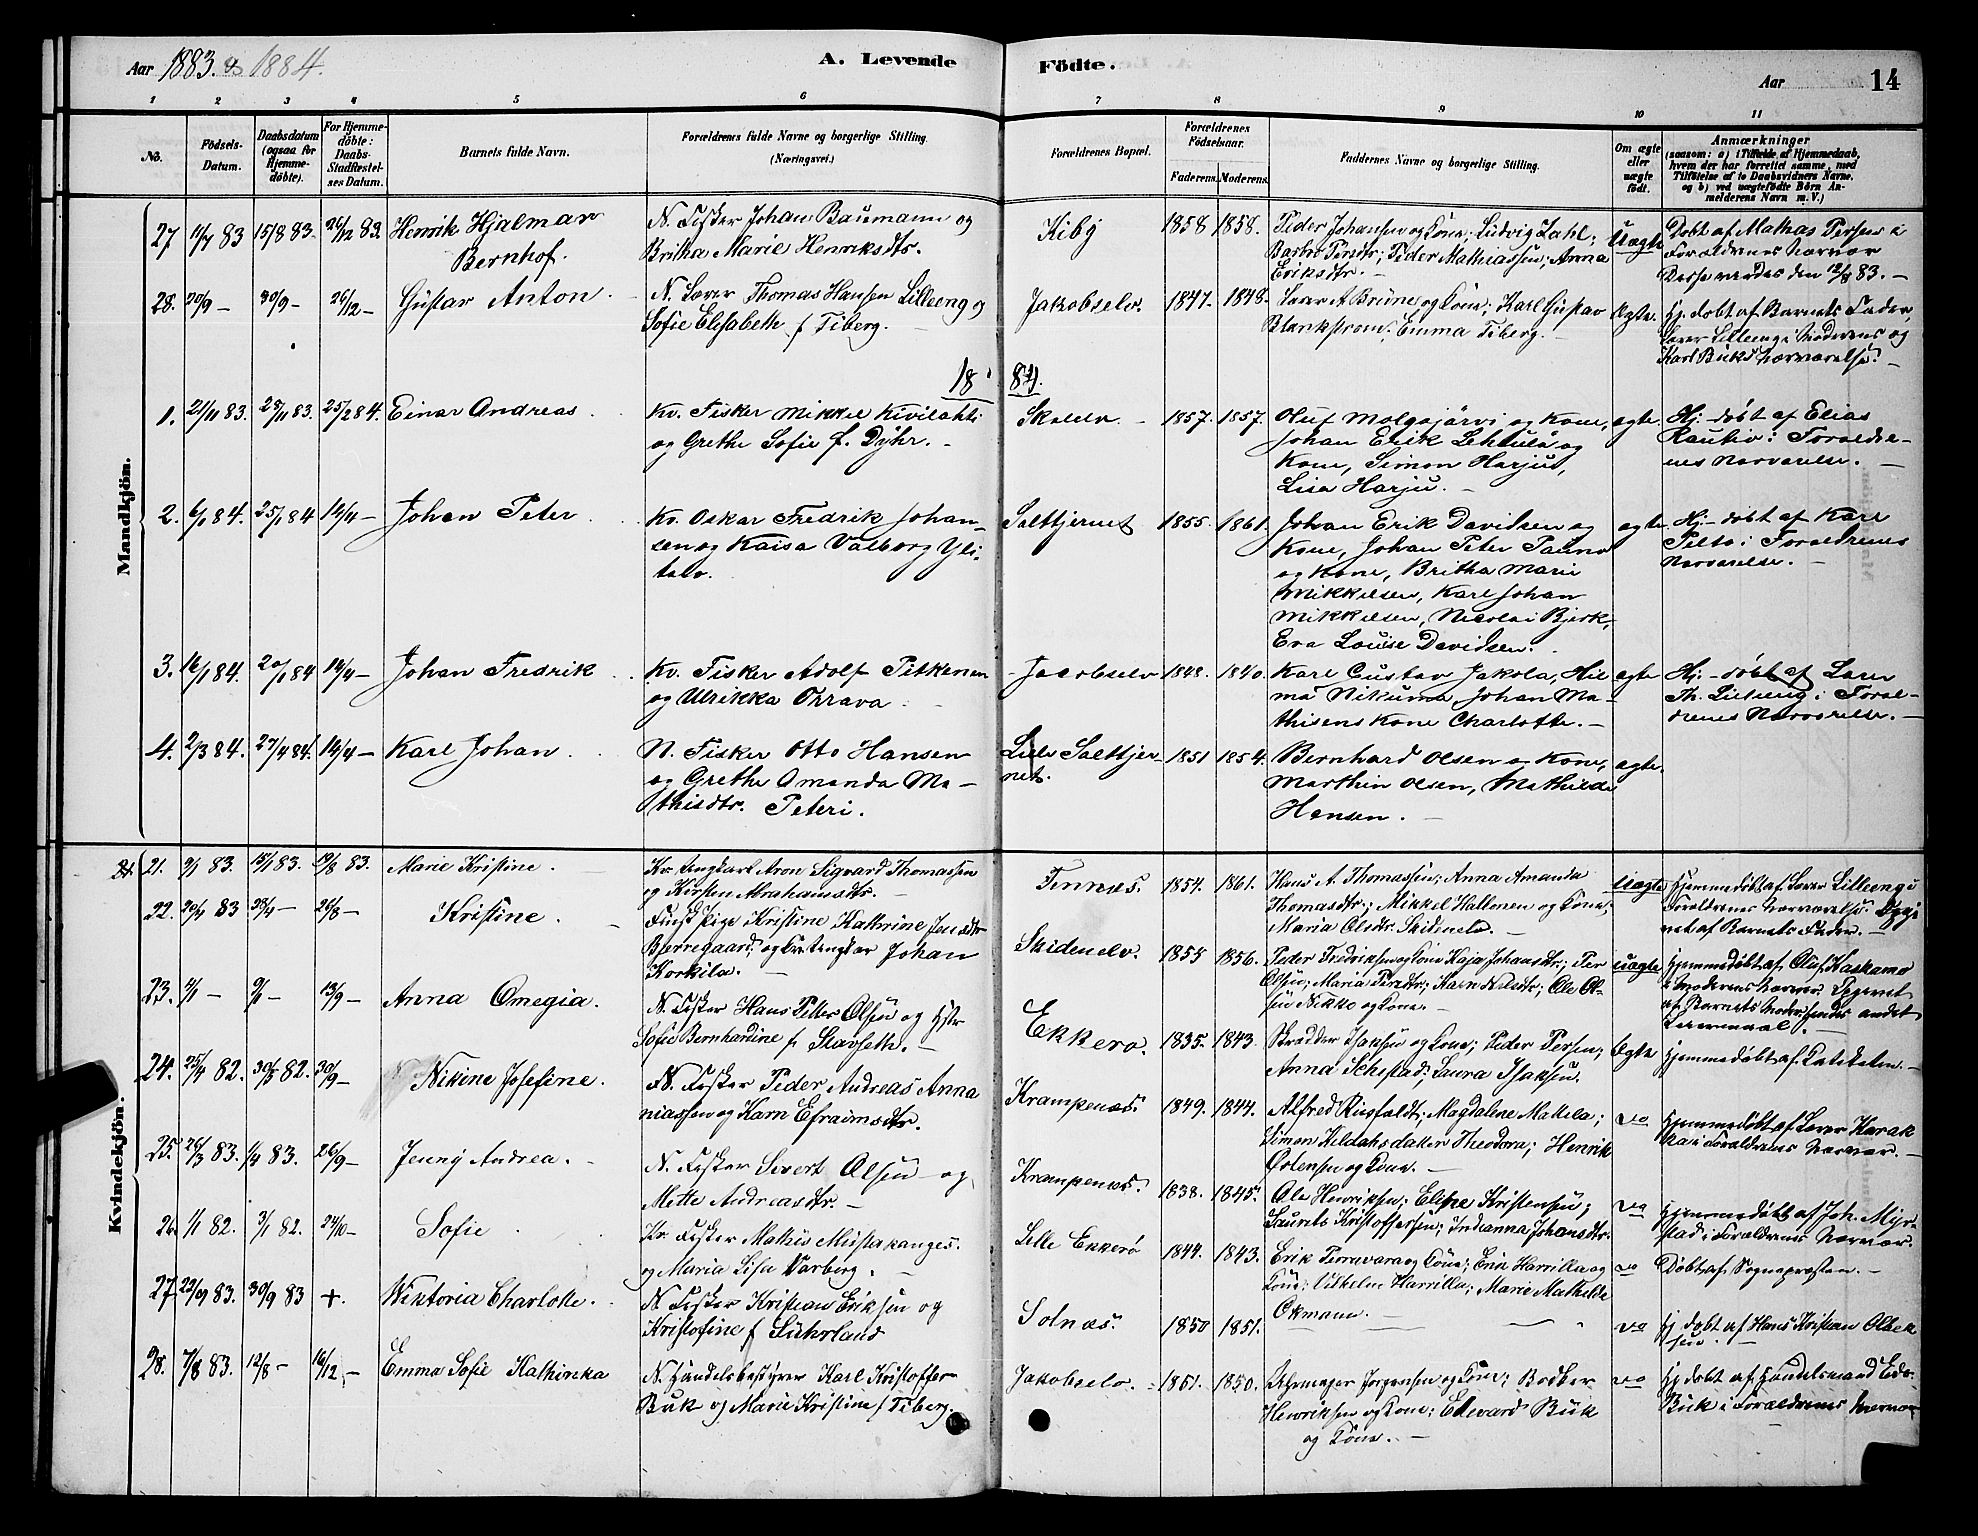 Aar 1883. & 1884.
A. Levende
Födte.
Aar
14
1 2 3 4 5 6 7 8 9 10 11
No.
Födsels-Datum.
Daabsdatum (ogsaa for Hjemme-döbte).
For Hjemme-döbte: Daabs-Stadfæstel-ses Datum.
Barnets fulde Navn.
Forældrenes fulde Navne og borgerlige Stilling. (Næringsvei.)
Forældrenes Bopæl.
Forældrenes Födselsaar.
Faderens. Moderens.
Faddernes Navne og borgerlige Stilling.
Om ægte eller uægte födt.
Anmærkninger
(saasom: a) i Tilfælde af Hjemmedaab, hvem der har forrettet samme, med Tilföielse af to Daabsvidners Navne, og b) ved uægtefödte Börn An-melderens Navn m. V.)
Mandkjön.
27 11/7 83 15/8 83. 26/12 83. Henrik Hjalmar
Bernhof.
N. Fisker Johan Baumann og
Britha Marie Henriksdtr.
Kiby 1858 1858.
Peder Johansen og Kone; Ludvig Dahl;
Barbro Persdtr; Peder Mathiassen; Anna
Eriksdtr. —
Uægte
Döbt af Mathas Persen i
Forældrenes Nærvær
28. 20/9 — 30/9 — 26/12 — Gustav Anton
N. Lærer Thomas Hansen Lilleeng og
Sofie Elisabeth f Tiberg.
Jakobselv. 1847. 1848.
Lærer A Brune og Kone; Karl Gustav
Blankstrom; Emma Tiberg. —
Ægte.
Hj. döbt af Barnets Fader,
Lærer Lilleeng i Moderens og
Karl Buks Nærværelse. —
1884.
1. 21/11 83. 28/11 83. 25/2 84. Einar Andreas
Kv. Fisker Mikkel Kivilahti
og Grethe Sofie f. Dyhr. —
Skalelv. — 1857. 1857.
Oluf Molgajärvi og Kone,
Johan Erik Lehtula og
Kone, Simon Harju,
Lisa Harju. —
ægte.
Hj.-döbt af Elias
Rauhv i Foræld-
renes Nærværelse. —
2. 6/1 84. 25/1 84 14/4 — Johan Peter
Kv. Oskar Fredrik Johan-
sen og Kaisa Valborg Yli-
talv.
Saltjernet 1855. 1861.
Johan Erik Davidsen og
Kone, Johan Peter Tauno
og Kone, Britha Marie
Mikkelsen, Karl Johan
Mikkelsen, Nicolai Bjerk,
Eva Louise Davidsen.
ægte
Hj.-döbt af Karl
Pelto i Forældrenes
Nærværelse. —
3. 16/1 84. 20/1 84 14/4 — Johan Fredrik
Kv. Fisker Adolf Pitkenen
og Ulrikka Ohrava
Jacobselv 1848. 1840.
Karl Gustav Jakola, Hil
ma Nikuma, Johan Ma-
thisens Kone Charlotte. —
ægte
Hj.-döbt af Lærer
Th. Lilleeng i Foræl-
drenes Nærværelse. —
4. 2/3 84. 27/4 84. 14/4 — Karl Johan
N. Fisker Otto Hansen
og Grethe Amanda Ma-
thisdtr. Peteri.
Lille Saltjer-
net. 1851 1854.
Bernhard Olsen og Kone,
Marthin Olsen, Mathilde
Hansen. —
ægte.
Kvindekjön.
21. 9/1 83. 15/1 83. 19/8 83. Marie Kristine.
Kv. Ungkarl Aron Sigvard Thomassen
og Kirsten Abrahamsdtr. —
Finnæs. 1854. 1861.
Hans A. Thomassen; Anna Amanda
Thomasdtr; Mikkel Hallonen og Kone;
Maria Olsdtr. Skidenelv. —
Uægte
Hjemmedöbt af Lærer Lilleeng i
Forældrenes Nærværelse. Opgi
vet af Barnets Fader. —
22. 20/4 83 28/4 — 26/8 — Kristine.
Finsk Pige Kristine Kathrine Jensdtr
Bjerregaard; og Kv. Ungkar Johan
Korkila. —
Skidenelv. 1855 1856.
Peder Fredriksen og Kone Kaja Johansdtr; Per
Olsen; Maria Persdtr; Karn Nilsdtr; Ole Ol-
sen Nikko og Kone. —
uægte
Hjemmedöbt af Oluf Kaskamo
i Moderens Nærvær. Opgivet
af Barnets Moder. Hendes andet
Leiermaal. —
23. 4/1 — 9/1 — 13/9 — Anna Omegia.
N. Fisker Hans Petter Olsen og Hstr
Sofie Bernhardine f. Stavseth. —
Ekkerö. 1835. 1843.
Skrædder Isaksen og Kone; Peder Persen;
Anna Sehstad; Laura Isaksen.
Ægte
Hjemmedöbt af Kateketen. —
24. 25/4 82. 30/3 82. 30/9 — Nikine Josefine.
N. Fisker Peder Andreas Anna
niassen og Karn Efraimsdtr.
Krampenæs. 1849. 1844.
Alfred Ringfaldt; Magdalene Makela;
Simon Kildahsdatter Theodora; Henrik
Östensen og Kone. —
do
Hjemmedöbt af Lærer Karak
ka i Forældrenes Nærvær. —
25. 26/3 83. 1/4 83. 26/9 — Jenny Andrea. —
N. Fisker Sivert Olsen — og
Mette Andreasdtr. —
Krampenæs. 1838. 1845.
Ole Henriksen; Eline Kristensen;
Laurits Kristoffersen; Indianna Johansdtr.
do
Hjemmedöbt af Joh. Myr-
stad i Forældrenes Nærvær.
26. 1/1 82. 3/1 82. 24/10 — Sofie
Kv. Fisker Mathis Mustakanges.
og Maria Lisa Varberg. —
Lille Ekkerö 1844. 1843.
Erik Perravara og Kone; Erik Harrilla og
Kone; Vilhelm Harrilla; Marie Mathilde
Ekmann.
do
Döbt af Sognepræsten. —
27. 22/09 83. 30/9 83 +. Wiktoria Charlotte.
N Fisker Kristian Eriksen og
Kristofine f Suhrland
Solnæs. 1850 1851.
do
Hj döbt af Hans Kristian Olbek
sen. —
28. 7/8 83. 12/8 — 16/12 — Emma Sofie Kathinka
N. Handelsbestyrer Karl Kristoffer
Buk og Marie Kristine f Tiberg.
Jakobselv. 1861. 1850.
Uhrmager Jörgensen og Kone; Bödker
Henriksen og Kone; Edevard Buk
og Kone. —
do
Hj döbt af Handelsmand Edv.
Buk i Forældrenes Nærvær